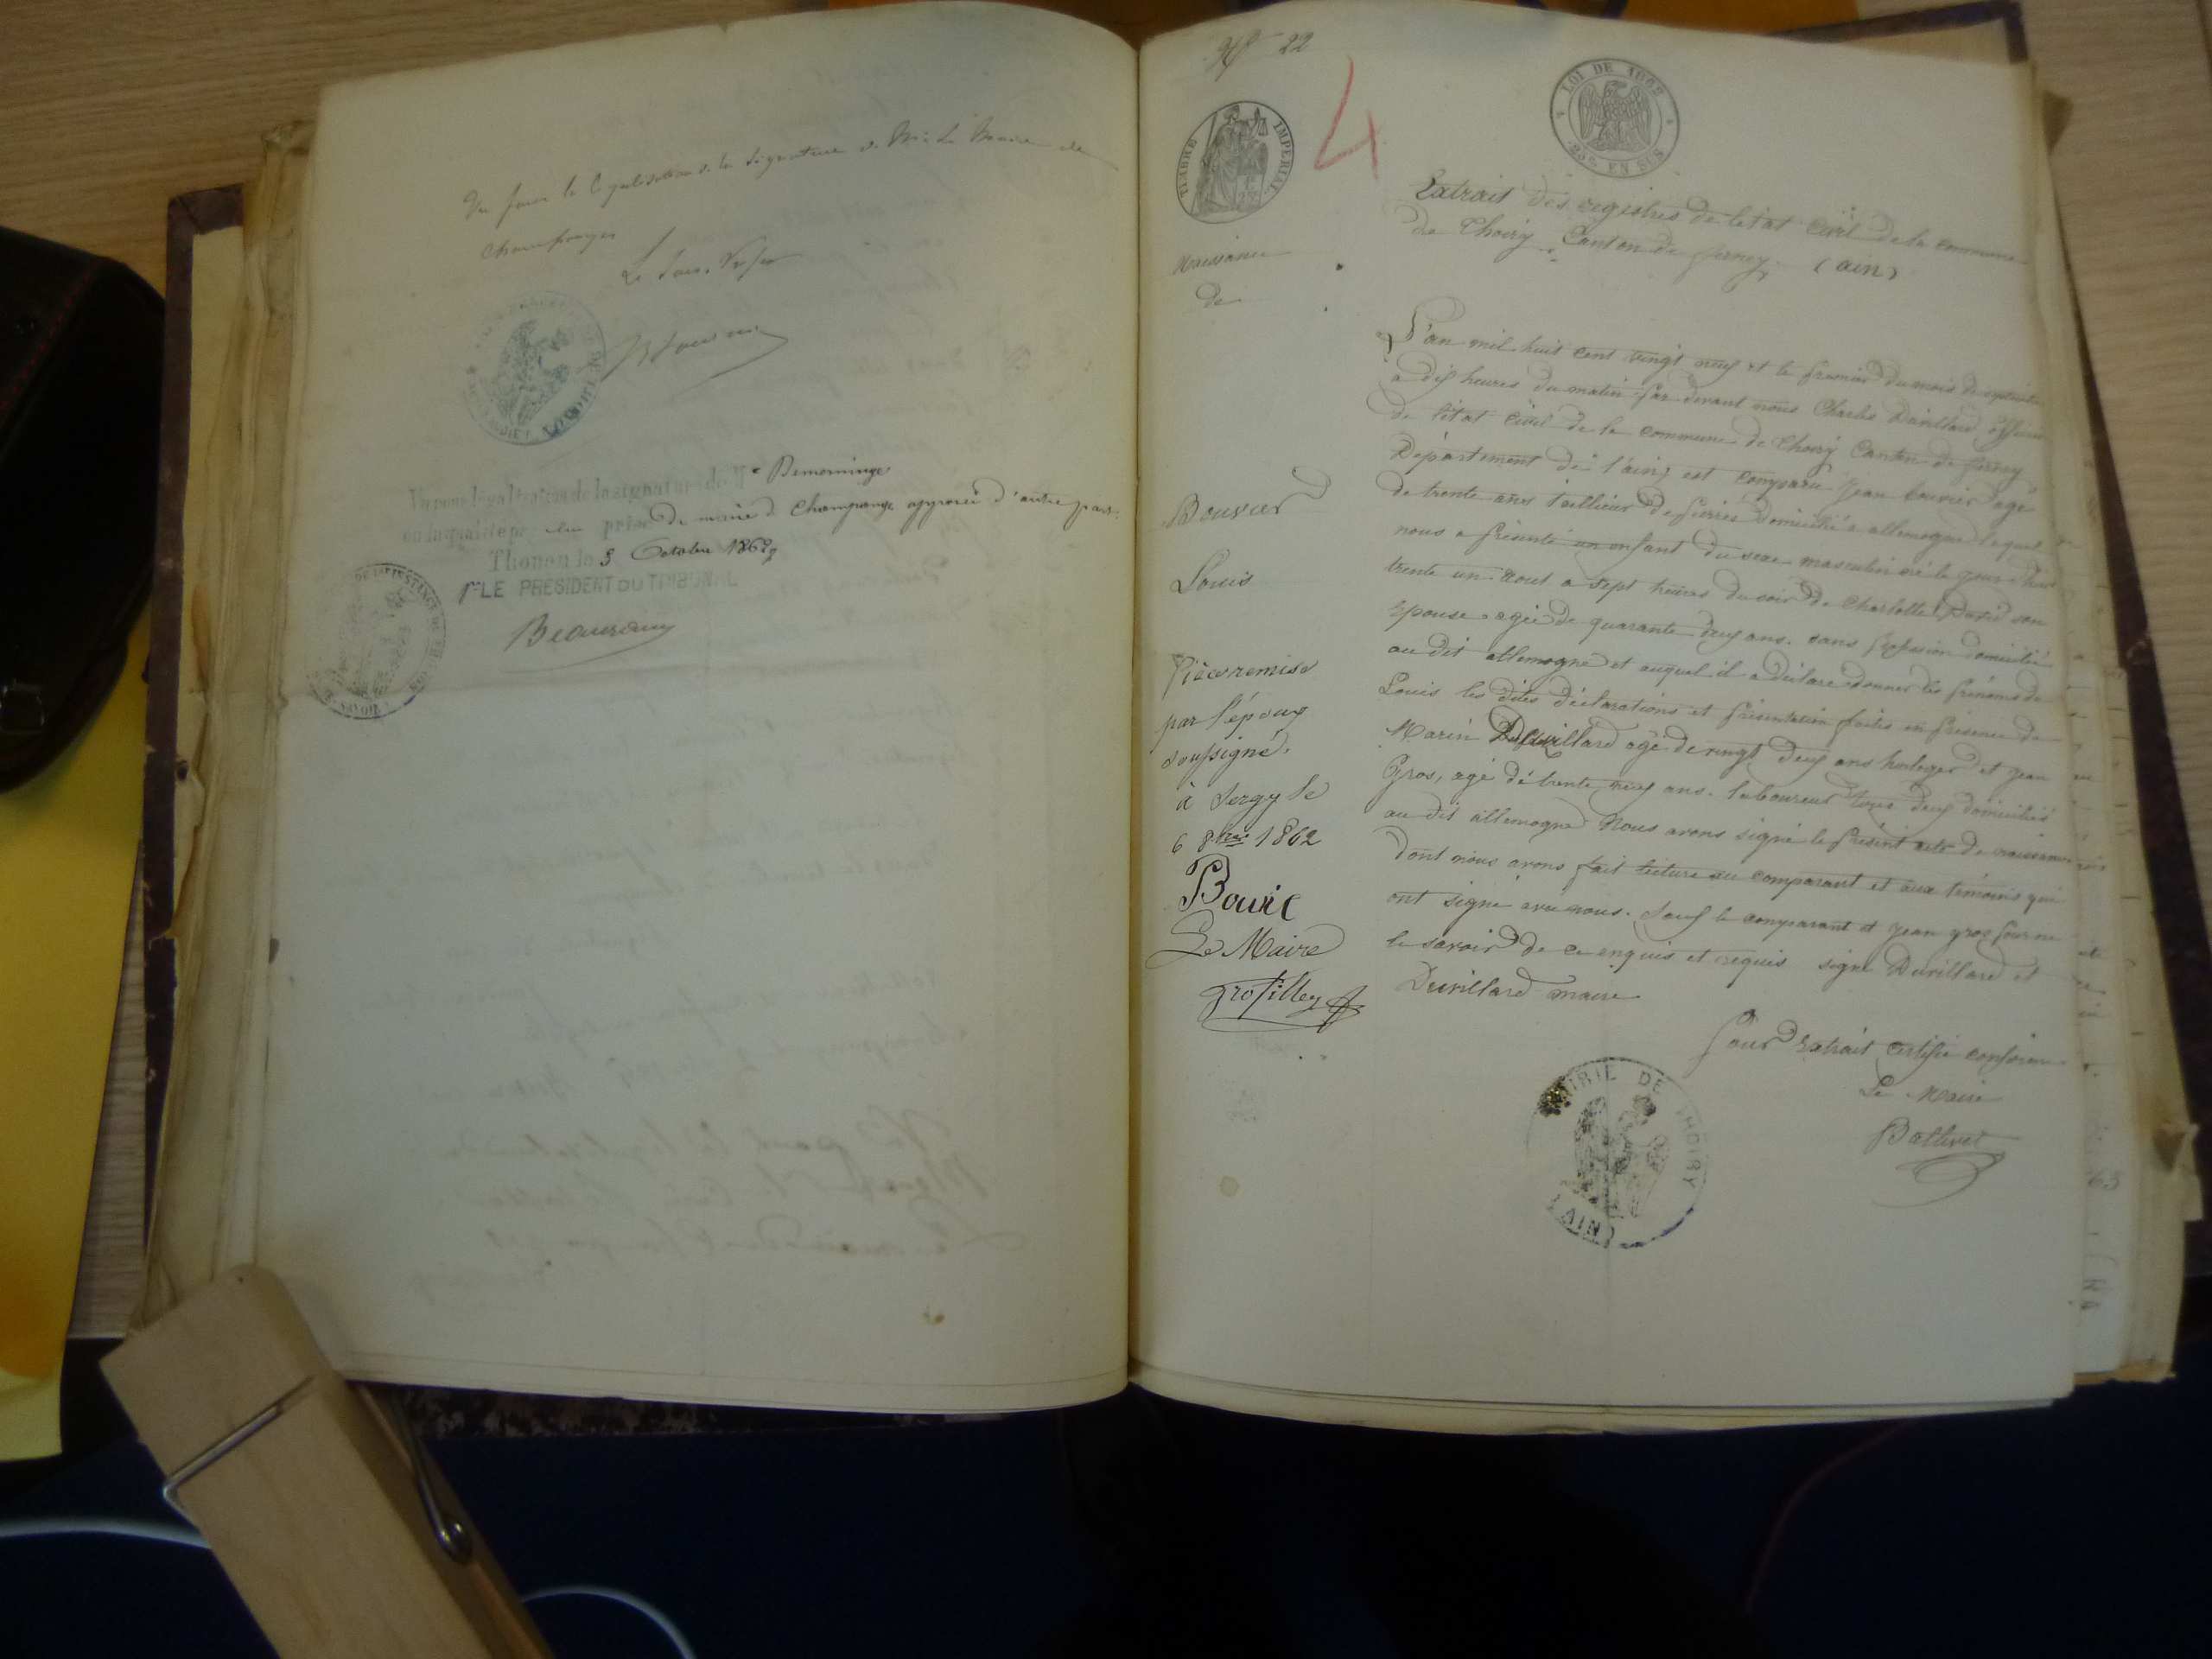 Vu pour la légalisation de la signature de Mr. Le Maire de
Champanges
Le Sous-Préfet
Vu pour légalisation de la signature de Mr Demorninge
en la qualité par lui prise de maire de Champange apposée d'autre part.
Thonon le 3 Octobre 1862
Pr LE PRESIDENT DU TRIBUNAL
Beaurain
No 22
4
TIMBRE IMPERIAL
LOI DE 1862
EN SUS
Extrait des registres de l'état civil de la commune
de Thoiry Canton de ferney. (ain)
Naissance
de
Bouvier
Louis
Pièce remise
par l'époux
soussigné,
à Sergy le
6 8bre 1862
Bouvie
Le Maire
Grosfilley
L'an mil huit cent vingt neuf et le premier du mois de septembre
a dix heures du matin par devant nous Charles Duvillard officier
de l'état civil de la commune de Thoiry Canton de ferney
Département de l'ain, est comparu jean bouvier agé
de trente ans tailleur de pierres domicilié a allemogne lequel
nous a présenté un enfant du sexe masculin né le jour d'hier
trente un aout a sept heures du soir de Charlotte son
épouse agée de quarante deux ans. sans profession domiciliée
au dit allemogne et auquel il a déclaré donner les prénoms de
Louis les dites déclarations et présentation faites en présence de
Marin Duvillard agé de vingt deux ans horloger et jean
Gros, agé de trente neuf ans. laboureur tous deux domiciliés
au dit allemogne Nous avons signé le présent acte de naissance
dont nous avons fait lecture au comparant et aux témoins qui
ont signé avec nous. Sauf le comparant et jean gros pour ne
le savoir de ce enquis et requis signé Duvillard et
Duvillard maire
Pour Extrait certifié conforme
Le Maire
Bathivet
MAIRIE DE THOIRY
(AIN)
63